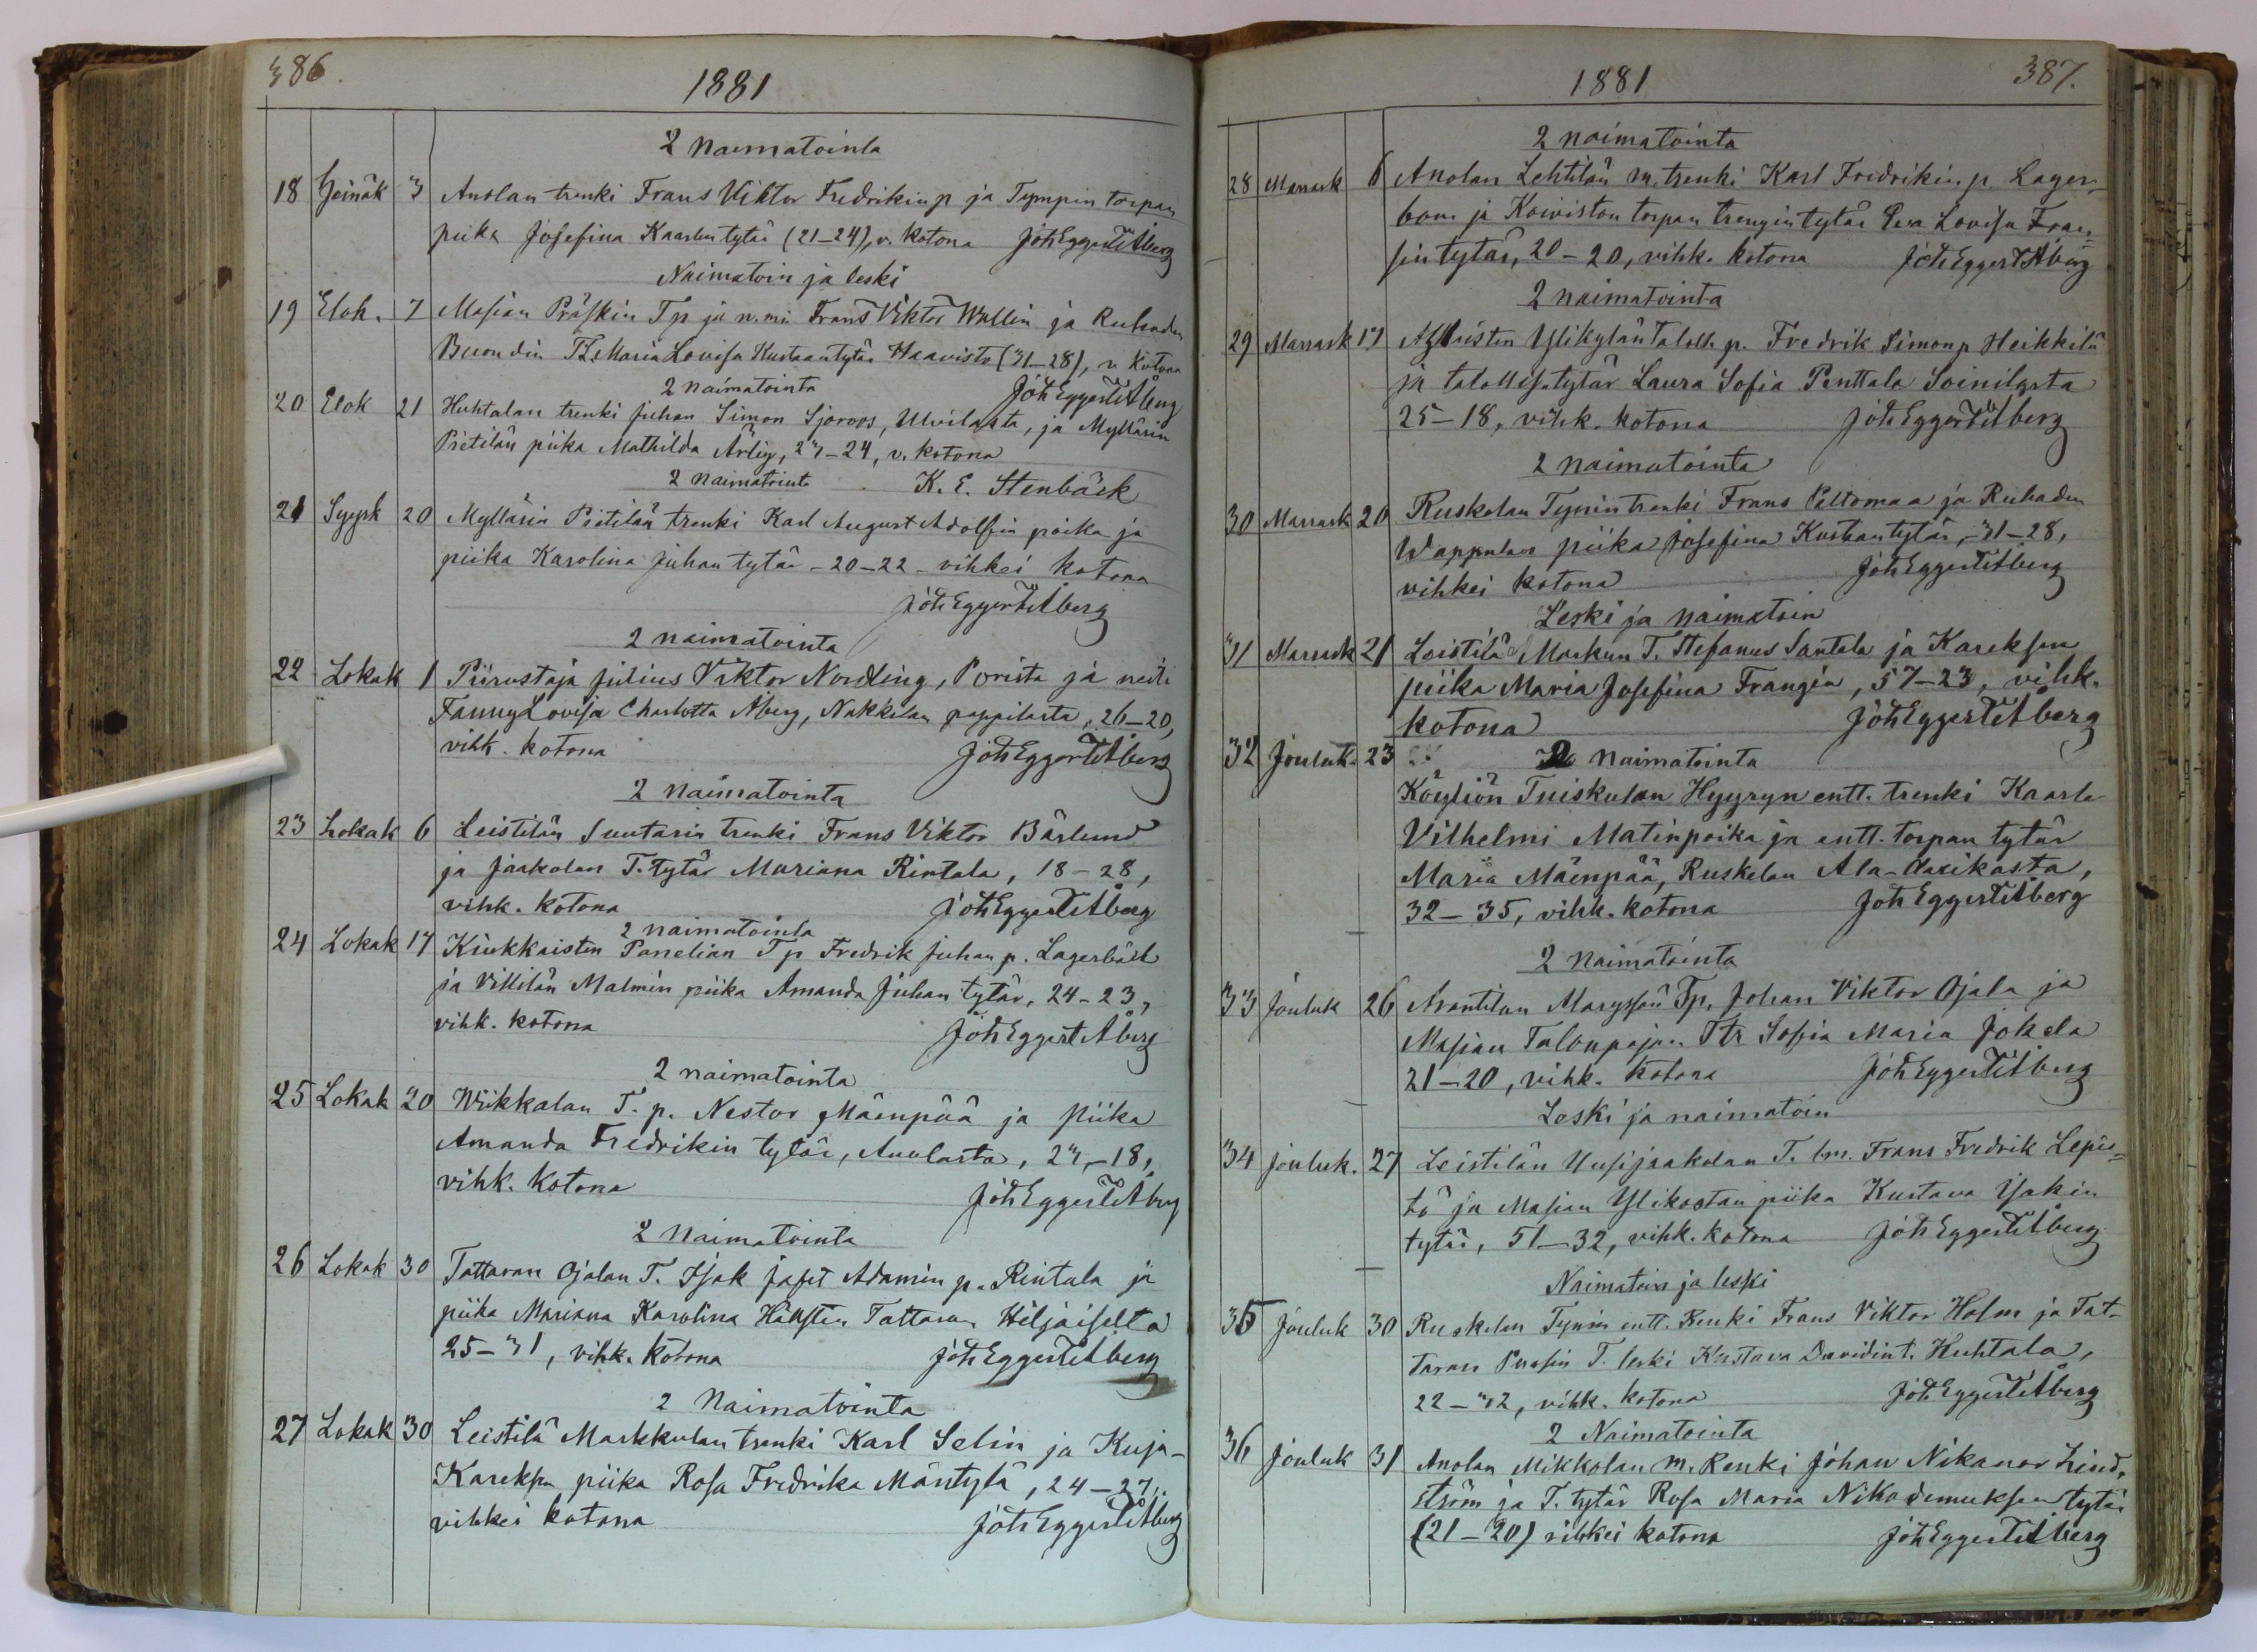 386.
1881
2 naimatointa
18 Heinäk 3 Anolan trenki Frans Viktor Fredrikinp ja Tympin torpan
piika Josefina Kaarlentytär (21-24), v. kotona Joh Eggert Åberg
Naimatoin ja leski
19 Elok. 7 Masian Präskin Tp ja n.mi Frans Viktor Wallin ja Ruhaden
Maria Lovisa Kustaantytär Haavisto (31-28), v. kotona
2 naimatointa Joh Eggert Åberg
20 Elok 21 Huhtalan trenki Juhan Simon Sjöroos, Ulvilasta, ja Myllärin
Pietilän piika Mathilda Ärlig, 23-24, v. kotona
2 naimatointa K. E. Stenbäck
21 Syysk 20 Myllärin Pietilän trenki Karl August Adolfin poika ja
piika Karolina Juhan tytär - 20-22 - vihkei kotona
Joh Eggert Åberg
2 naimatointa
22 Lokak 1 Piirustaja Julius Viktor Nordling, Porista ja neiti
Fanny Lovisa Charlotta Åberg, Nakkilan pappilasta, 26-20,
vihk. kotona Joh Eggert Åberg
2 naimatointa
23 Lokak 6 Leistilän Suutarin trenki Frans Viktor Bärlund
ja Jaakolan T. tytär Mariana Rintala, 18-28,
vihk. kotona Joh Eggert Åberg
2 naimatointa
24 Lokak 17 Kiukkaisten Panelian Tp Fredrik Juhan p. Lagerbäck
ja Villilän Malmin piika Amanda Juhan tytär, 24-23,
vihk. kotona Joh Eggert Åberg
2 naimatointa
25 Lokak 20 Wiikkalan T. p. Nestor Mäenpää ja piika
Amanda Fredrikin tytär, Anolasta, 23,-18,
vihk. kotona Joh Eggert Åberg
2 Naimatointa
26 Lokak 30 Tattaran Ojalan T. Isak Jafet Adamin p. Rintala ja
piika Mariana Karolina Tattaran Hiljaiselta
25-31, vihk. kotona Joh Eggert Åberg
2 Naimatointa
27 Lokak 30 Leistilä Markkulan trenki Karl Selin ja Kuja-
Kareksen piika Rosa Fredrika Mäntylä, 24-27,
vihkei kotona Joh Eggert Åberg
1881
387.
2 naimatointa
28 Marrask 6 Anolan Lehtilän m. trenki Karl Fredrikin p. Lager-
bom ja Koiviston torpan trengin tytär Eva Lovisa Fran-
sin tytär, 20-20, vihk. kotona Joh Eggert Åberg
2 naimatointa
29 Marrask 17 Ylikylän Taloll. p. Fredrik Simonp Heikkilä
ja talollis. tytär Laura Sofia Penttala Soinilasta
25-18, vihk. kotona Joh Eggert Åberg
2 naimatointa
30 Marrask 20 Ruskelan Tynin trenki Frans Peltomaa ja Ruhaden
Wappulan piika Josefina Kustaantytär, 31-28,
vihkei kotona Joh Eggert Åberg
Leski ja naimatoin
31 Marrask 21 Leistilä Markun T. Stefanus Santala ja Kareksen
piika Maria Josefina Frangén, 57-23, vihk.
kotona Joh Eggert Åberg
32 Jouluk. 23 2 naimatointa
Köyliön Tuiskulan Hyyryn entt. trenki Kaarle
Vilhelmi Matinpoika ja entt. torpan tytär
Maria Mäenpää, Ruskelan
32-35, vihk. kotona Joh Eggert Åberg
2 naimatointa
33 Jouluk 26 Arantilan Tp. Johan Viktor Ojala ja
Masian Talonpojan Ttr Sofia Maria Jokela
21-20, vihk. kotona Joh Eggert Åberg
Leski ja naimatoin
34 Jouluk. 27 Leistilän Uusijaakolan T. lm. Frans Fredrik Lepis-
tö ja Masian piika Kustava Isakin
tytär, 51-32, vihk. kotona Joh Eggert Åberg
Naimatoin ja leski
35 Jouluk 30 Ruskelan Tynin entt. Renki Frans Viktor Holm ja Tat-
taran T. leski Kustava Davidint. Huhtala,
22-32, vihk. kotona Joh Eggert Åberg
2 Naimatointa
36 Jouluk 31 Anolan Mikkolan m. Renki Johan Nikanor Lind-
ström ja T. tytär Rosa Maria Nikodemuksen tytär
(21-20) vihkei kotona Joh Eggert Åberg